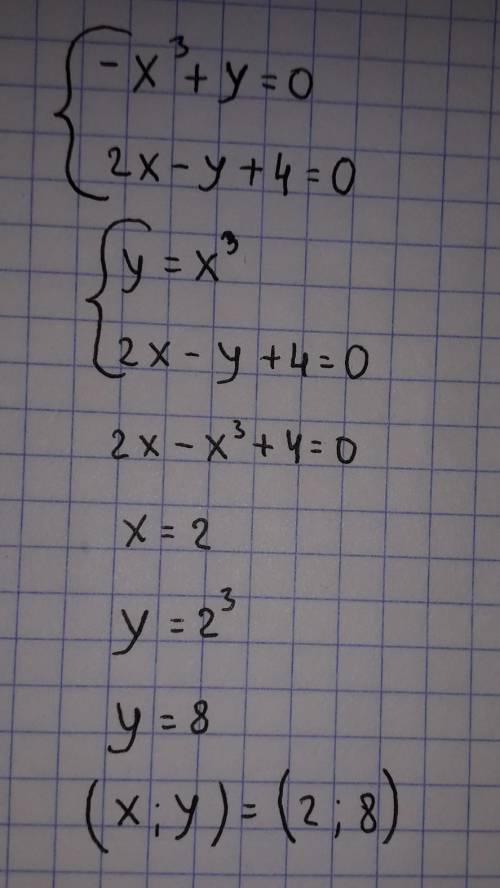 -x³+y=0
2x-y+4=0
y=x³
2x-y+4=0
2x-x³+4=0
x=2
y=2³
y=8
(x;y)=(2;8)